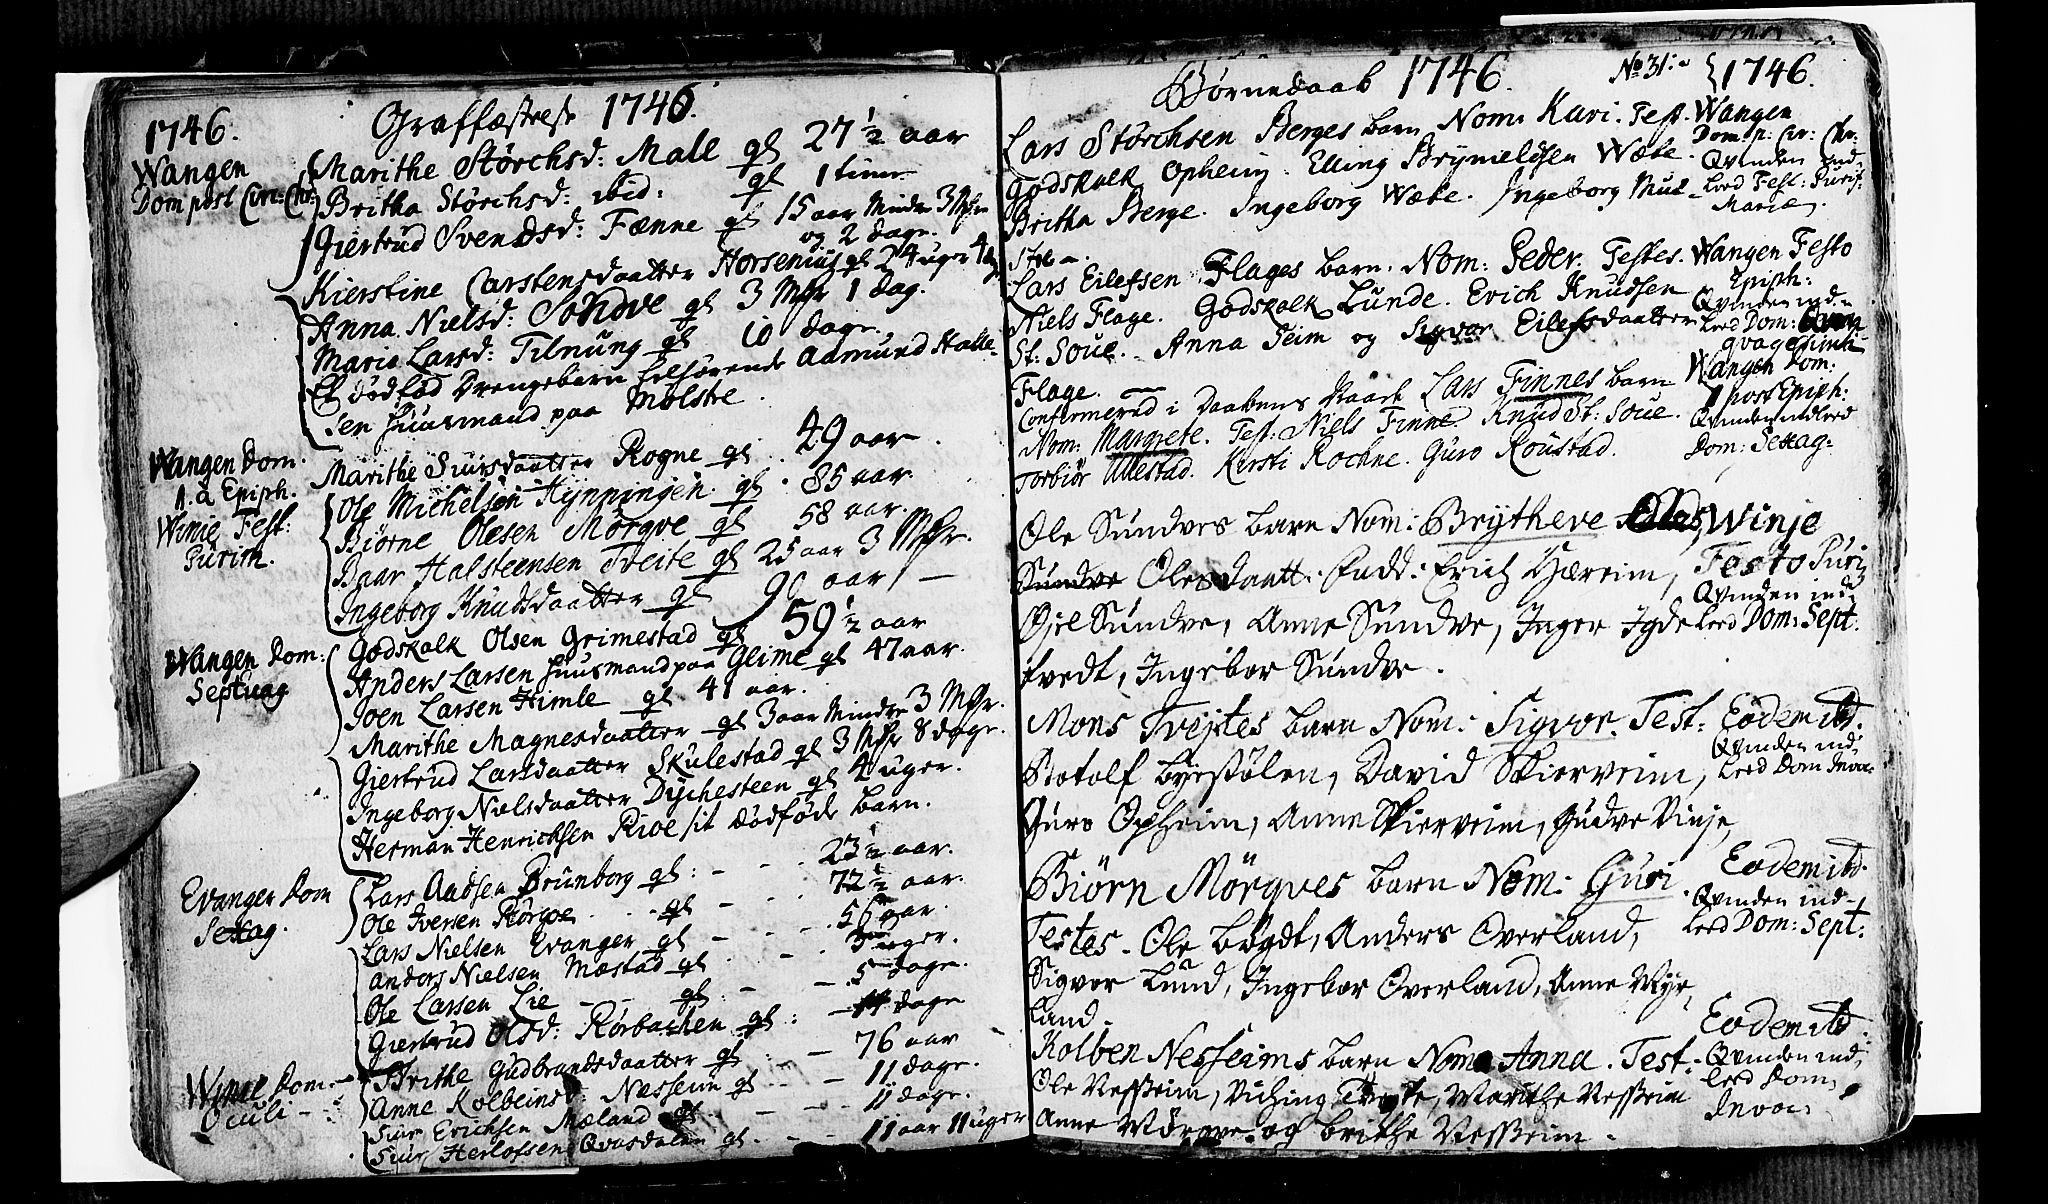 1746.
Graffæstelse 1746.
Wangen
Dom post Circ: Chr:
Marithe Störchsd: Mall gl 27 1/2 aar
Britha Störchsd: ibid: gl 1 time
Giertrud Svendsd: Fænne gl 15 aar Mindr 3 Mhr
og 2 dage.
Kierstine Carstensdaatter Horsenius gl 24 uger 4
Anna Nielsd: Sondve gl 3 Mhr 1 dag.
Maria Larsd: Tilnung gl 10 dage.
Et dödföd Drengebarn tilhörende Aamund Halle-
sen Huusmand paa Mølstre.
Wangen Dom.
1. á Epiph.
Marithe Siursdaatter Rogne gl 49 aar.
Winie Fest:
Purim.
Ole Michelsen Hynningen gl. 85 aar.
Biørne Olesen Mörqve gl 58 aar.
Baar Halsteensen Tveite gl 25 aar 3 Mhr.
Ingeborg Knudsdaatter gl 90 aar
Wangen Dom:
Septuag
Godskalk Olsen Grimestad gl 59 1/2 aar
Anders Larsen Huusmand paa Glime gl 47 aar.
Joen Larsen Himle gl 41 aar.
Marithe Magnesdaatter gl 3 aar Mindre 3 Mhr.
Giertrud Larsdaatter Skulestad gl 3 Mhr 8 dage.
Ingeborg Nielsdaatter Dychesteen gl 4 uger.
Herman Henrichsen Rioe sit dödföde barn.
Evanger Dom
Sexag.
Lars Aadsen Brunborg gl: 23 1/2 aar.
Ole Iversen gl 72 1/2 aar.
Lars Nielsen Evanger gl 56 aar.
Anders Nielsen Mæstad gl uger.
Ole Larsen Lie gl: 5 dage.
Giertrud Olsd: Rörbachen gl: dage
Winie Dom.
Oculi
Brithe Gudbrandsdaatter gl: 76 aar
Anne Kolbeinsd: Næsseim gl 11 dage.
Siur Erichsen Mæland gl. 11 dage.
Siur Herlofsen Qvasdalen gl. 11 aar 11 uger
Börnedaab 1746. No 31: 1746.
Lars Störchsen Berges barn Nom: Kari. Test.
Godskalk Opheim. Elling Brynielsen Wæte.
Britha Berge. Ingeborg Wæte. Ingeborg Mul-
Wangen
Dom p: Cir: Chr:
Qvinden ind-
leed Fest: Purif:
Mariæ.
Lars Eilefsen Flages barn. Nom: Peder. Testes.
Niels Flage. Godskalk Lunde. Erich Knudsen
St: Soue. Anna Seim og Sigvor Eilefsdaatter
Flage.
Wangen Festo
Epiph:
Qvinden ind-
leed Dom:
qvagesimæ
Confirmered i Daabens Pagt Lars Finnes barn
Nom: Margrete. Test: Niels Finne. Knud St: Soue.
Torbiör Ullestad. Kirsti Rochne. Guro Roustad.
Wangen Dom:
1 post Epiph:
Qvinden indleed
Dom: Sexag:
Ole Sundves barn Nom: Brytheve
Sundve Olesdaatt. Fadd: Erich Hæreim,
Ojel Sundve, Anne Sundve, Inger Igde
tvedt, Ingebor Sundve.
Winje
Festo Puri
Qvinden ind-
leed Dom: Sept:
Mons Tvejtes barn Nom: Sigvor. Test:
Botolf byrstölen, David Skierveim,
Guro Opheim, Anne Skierveim, Gudve Vinje,
Eodem ibd.
Qvinden ind-
leed Dom Invoc
Biörn Mörqves barn Nom: Guri.
Testes. Ole bögdt, Anders Overland,
Sigvor Lund, Ingebor Overland, Anne Myr
land.
Eodem ibd.
Qvinden ind-
leed Dom: Sept:
Kolben Nesheims barn Nom: Anna. Test:
Ole Nessheim, Viching Tvejte, Marithe Nessheim
Anne Mörqve og brithe Nessheim.
Eodem ibd.
Qvinden ind-
leed Dom
Invoc